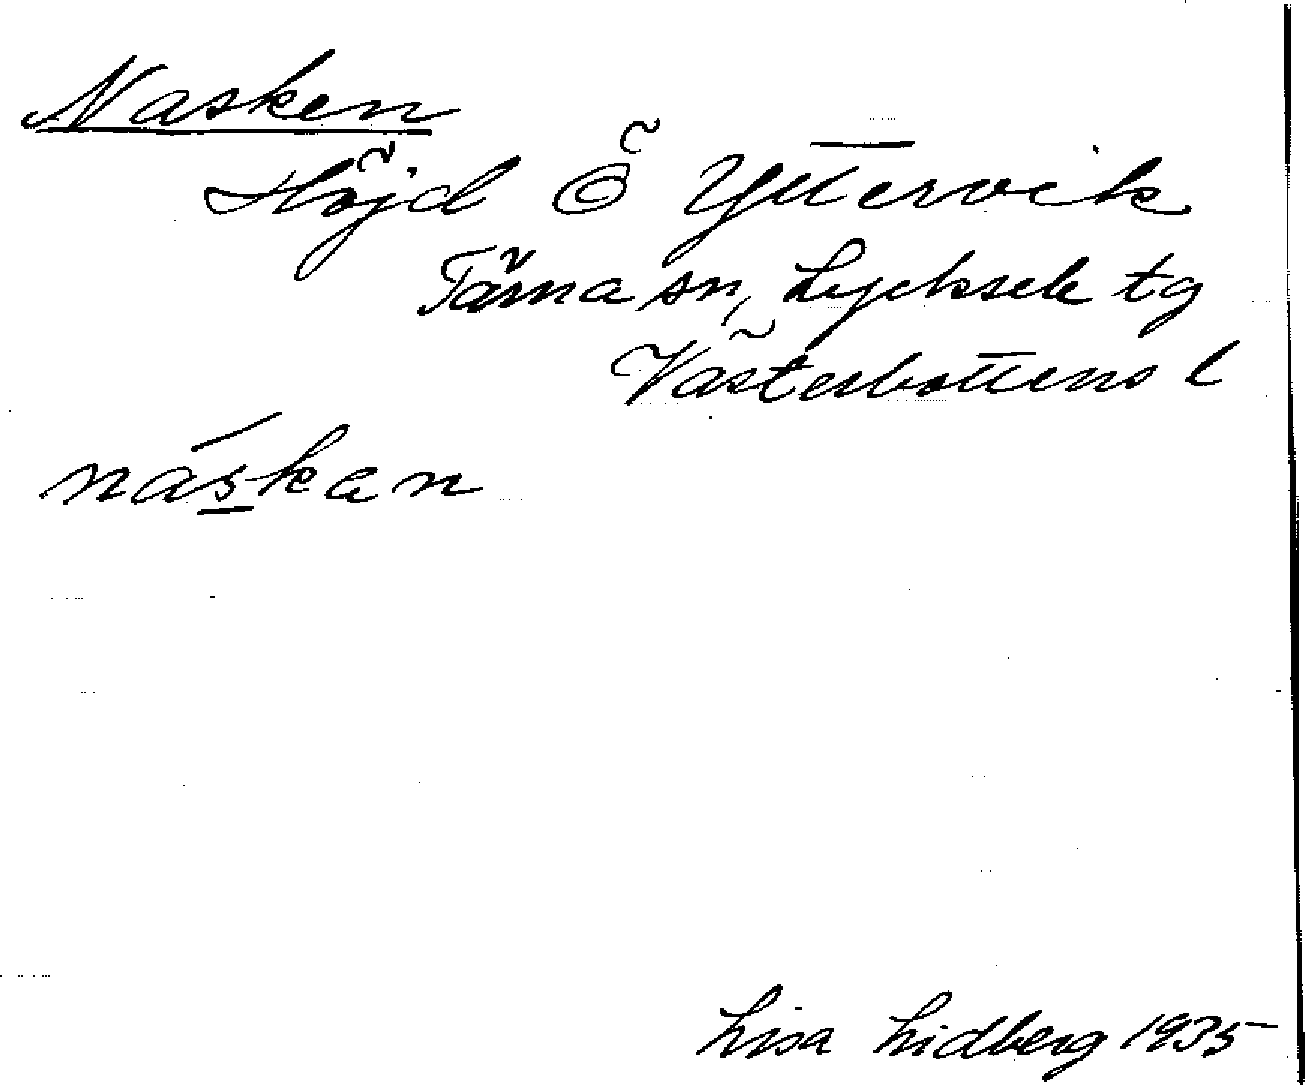 Nasken
Höjd Ö Yttervik
Tärna sn, Lycksele tg
Västerbottens l
náskan
Lisa Lidberg 1935